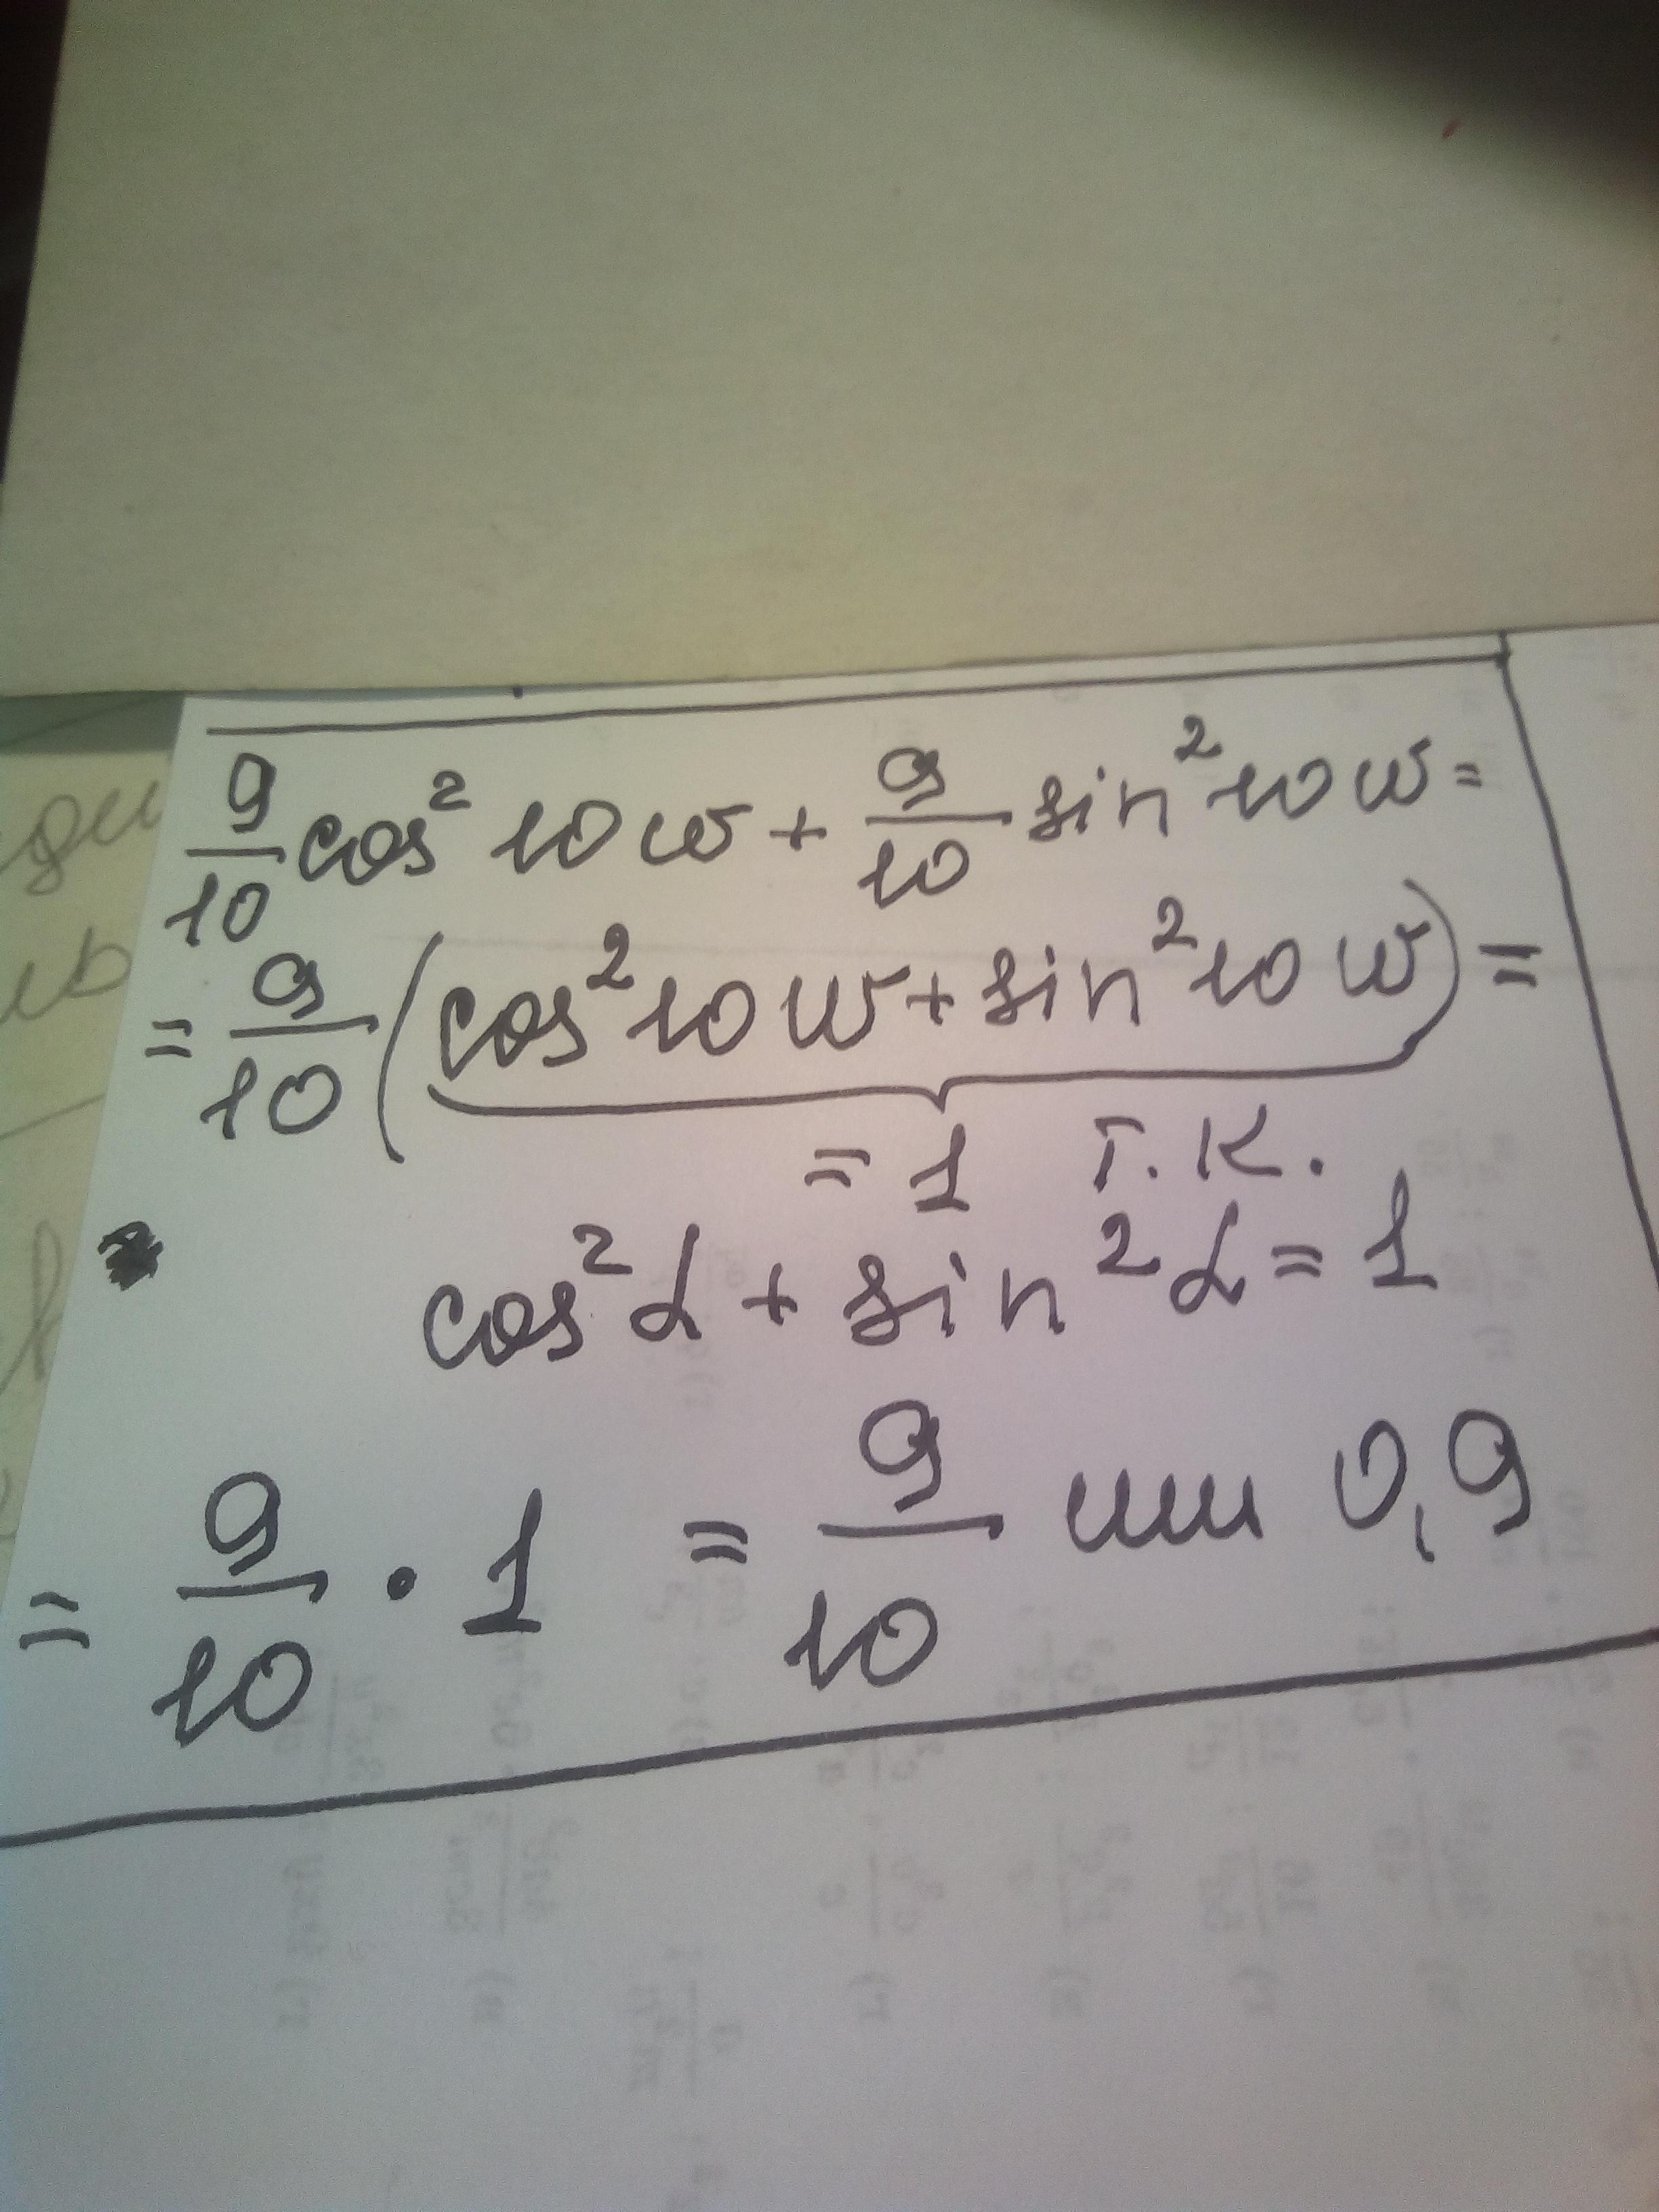 9/10 cos² 10w + 9/10 sin² 10w =
= 9/10 (cos² 10w + sin² 10w) =
= 1 т.к.
cos² α + sin² α = 1
= 9/10 · 1 = 9/10 или 0,9